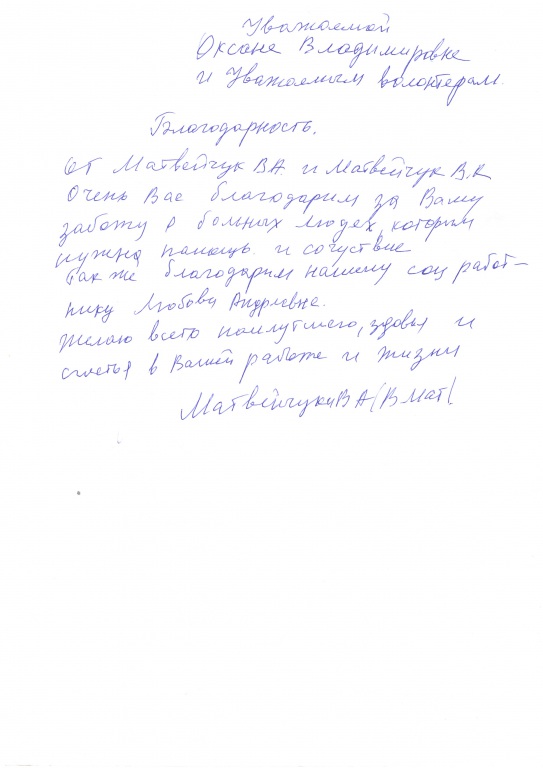 Уважаемой
Оксане Владимировне
и Уважаемым волонтерам.
Благодарность.
от Матвейчук В.А. и Матвейчук В.К
Очень Вас благодарим за Вашу
заботу о больных людях, которым
нужна помощь. и сочуствие
Так же благодарим нашему соц работ-
нику Любовь Андреевне.
Желаю всего наилутшего, здовья и
счастья в Вашей работе и жизни
Матвейчуки В А (В Мат(